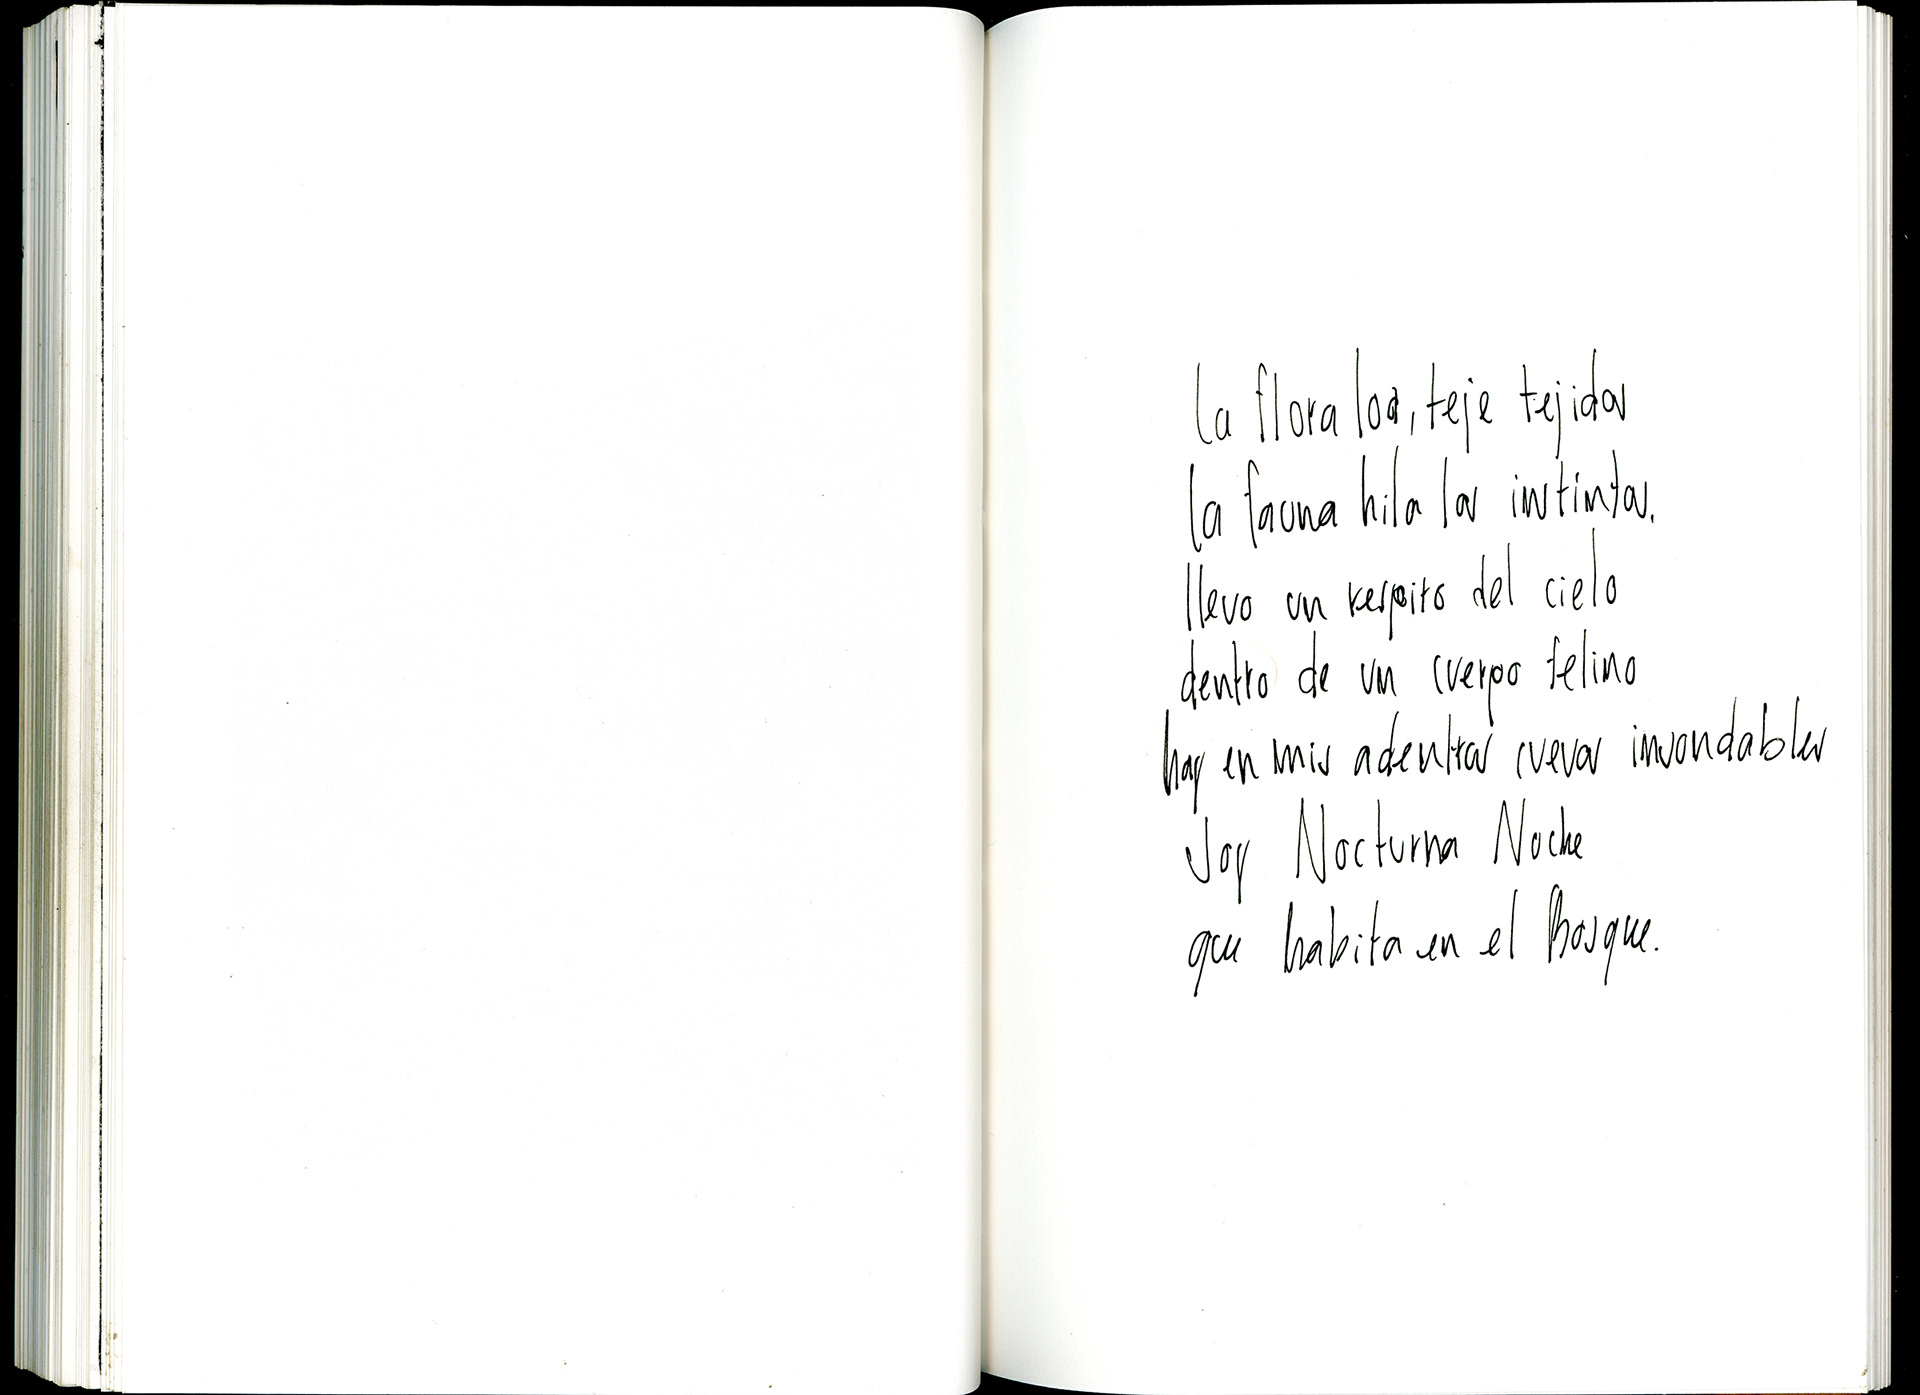 la flora loa, teje tejidos
la fauna hila los instintos.
llevo un respiro del cielo
dentro de un cuerpo felino
hay en mis adentros cuevas insondables
Soy Nocturna Noche
que habita en el Bosque.